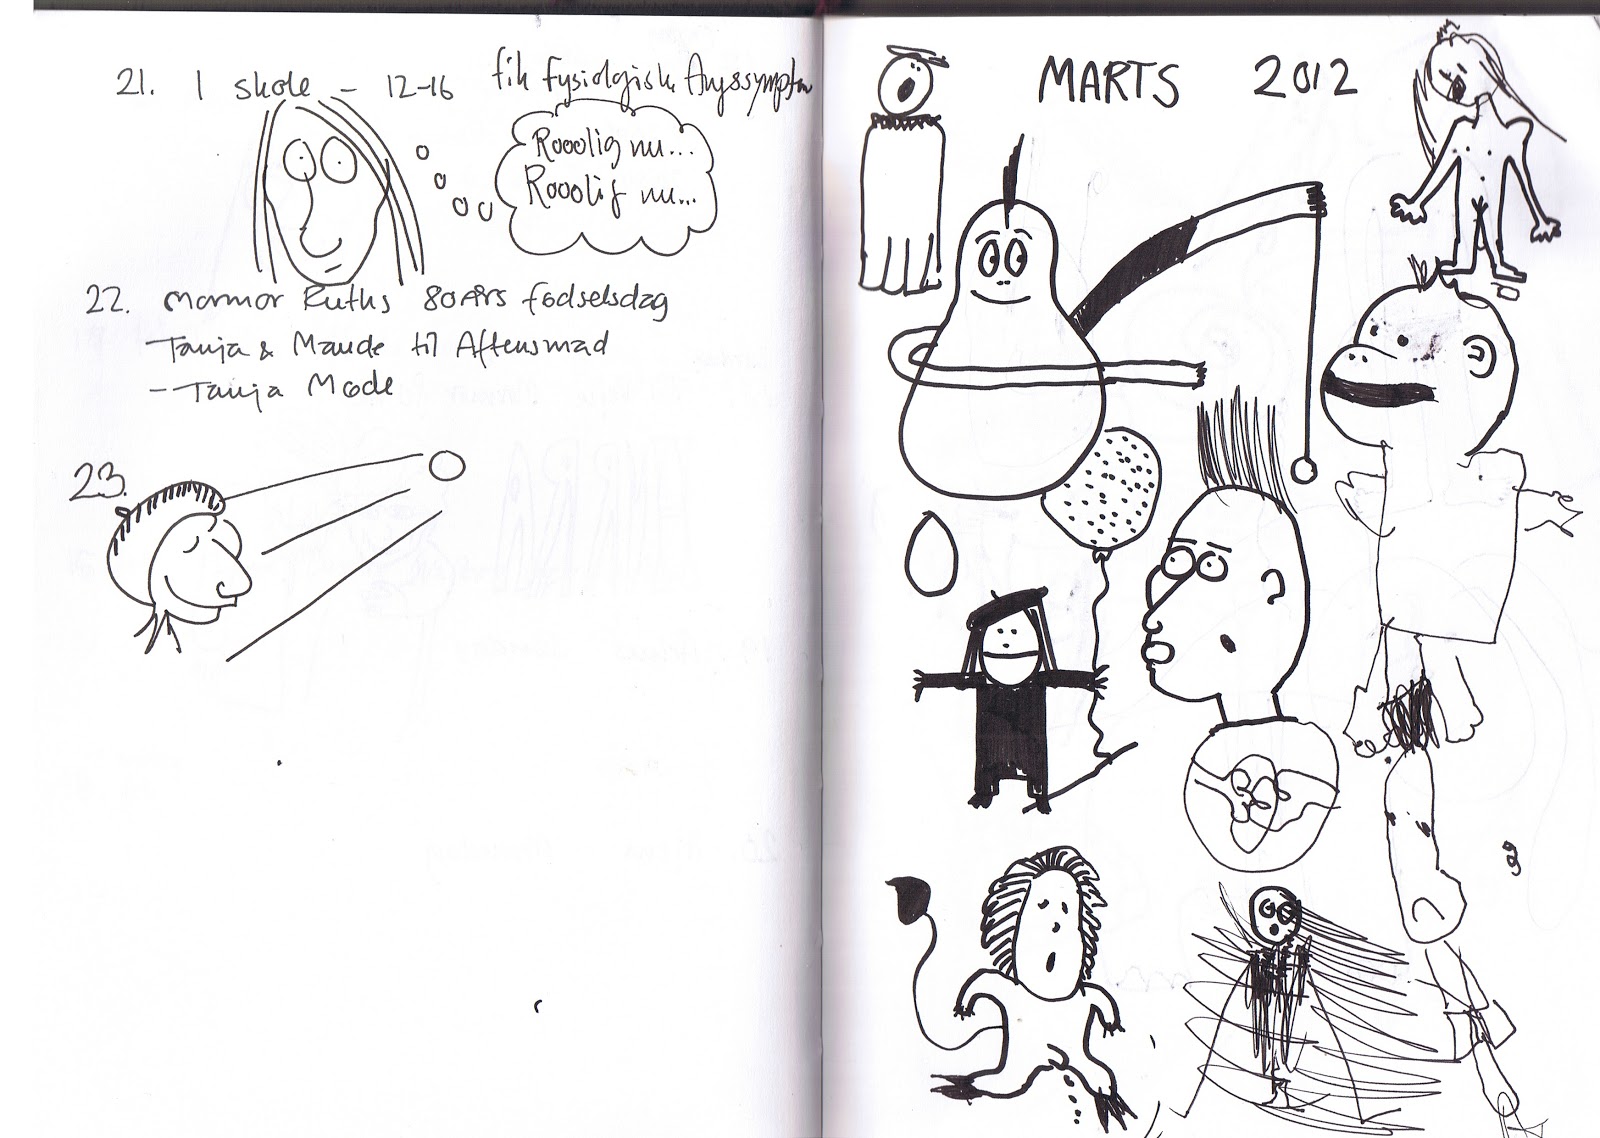 21. I skole – 12-16 fik Fysiolgisk Angssymptom
Rooolig nu...
Rooolig nu...
22. mormor Ruths 80 Års fødselsdag
- Tanja & Maude til Aftensmad
- Tanja Mode
23.
MARTS 2012